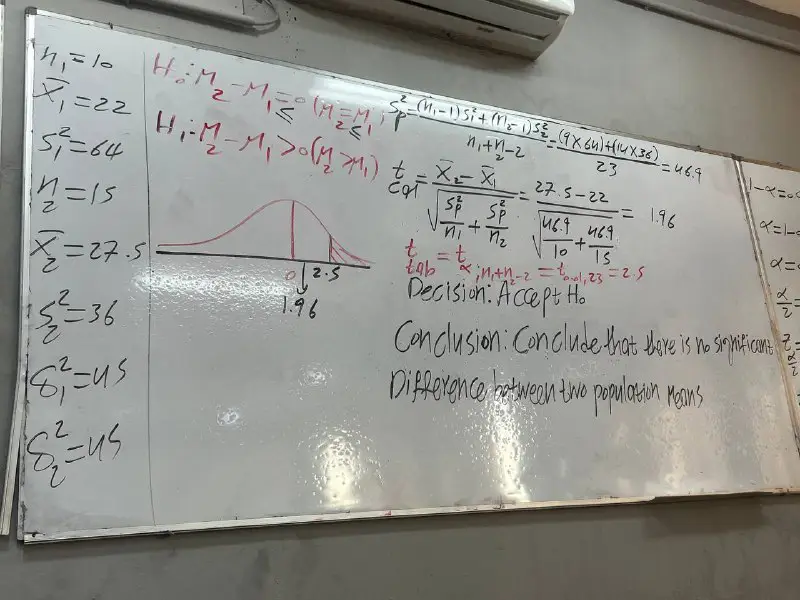 n₁=10
X̄₁=22
S₁²=64
n₂=15
X̄₂=27.5
S₂²=36
δ₁²=45
δ₂²=45
H₀:M₂-M₁=0(M₂=M₁)
≤ ≤
H₁:M₂-M₁>0(M₂>M₁)
0 2.5
1.96
Sp²=(n₁-1)S₁²+(n₂-1)S₂²/n₁+n₂-2=(9×64)+(14×36)/23=46.9
t cal=X̄₂-X̄₁/√Sp²/n₁+Sp²/n₂=27.5-22/√46.9/10+46.9/15=1.96
t tab=t α;n₁+n₂-2=t 0.01,23=2.5
Decision: Accept H₀
Conclusion: Conclude that there is no significant
Difference between two population Means
1-α=0.
α=1-
α=
α/2=
Z α/2=